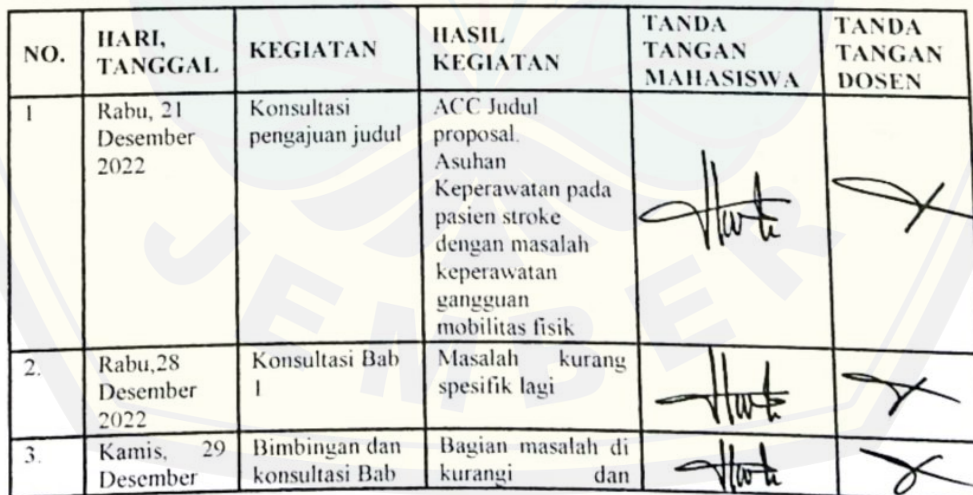 NO.
HARI,
TANGGAL
KEGIATAN
HASIL
KEGIATAN
TANDA
TANGAN
MAHASISWA
TANDA
TANGAN
DOSEN
1
Rabu, 21
Desember
2022
Konsultasi
pengajuan judul
ACC Judul
proposal.
Asuhan
Keperawatan pada
pasien stroke
dengan masalah
keperawatan
gangguan
mobilitas fisik
2.
Rabu,28
Desember
2022
Konsultasi Bab
1
Masalah kurang
spesifik lagi
3.
Kamis, 29
Desember
Bimbingan dan
konsultasi Bab
Bagian masalah di
kurangi dan
JEMBER